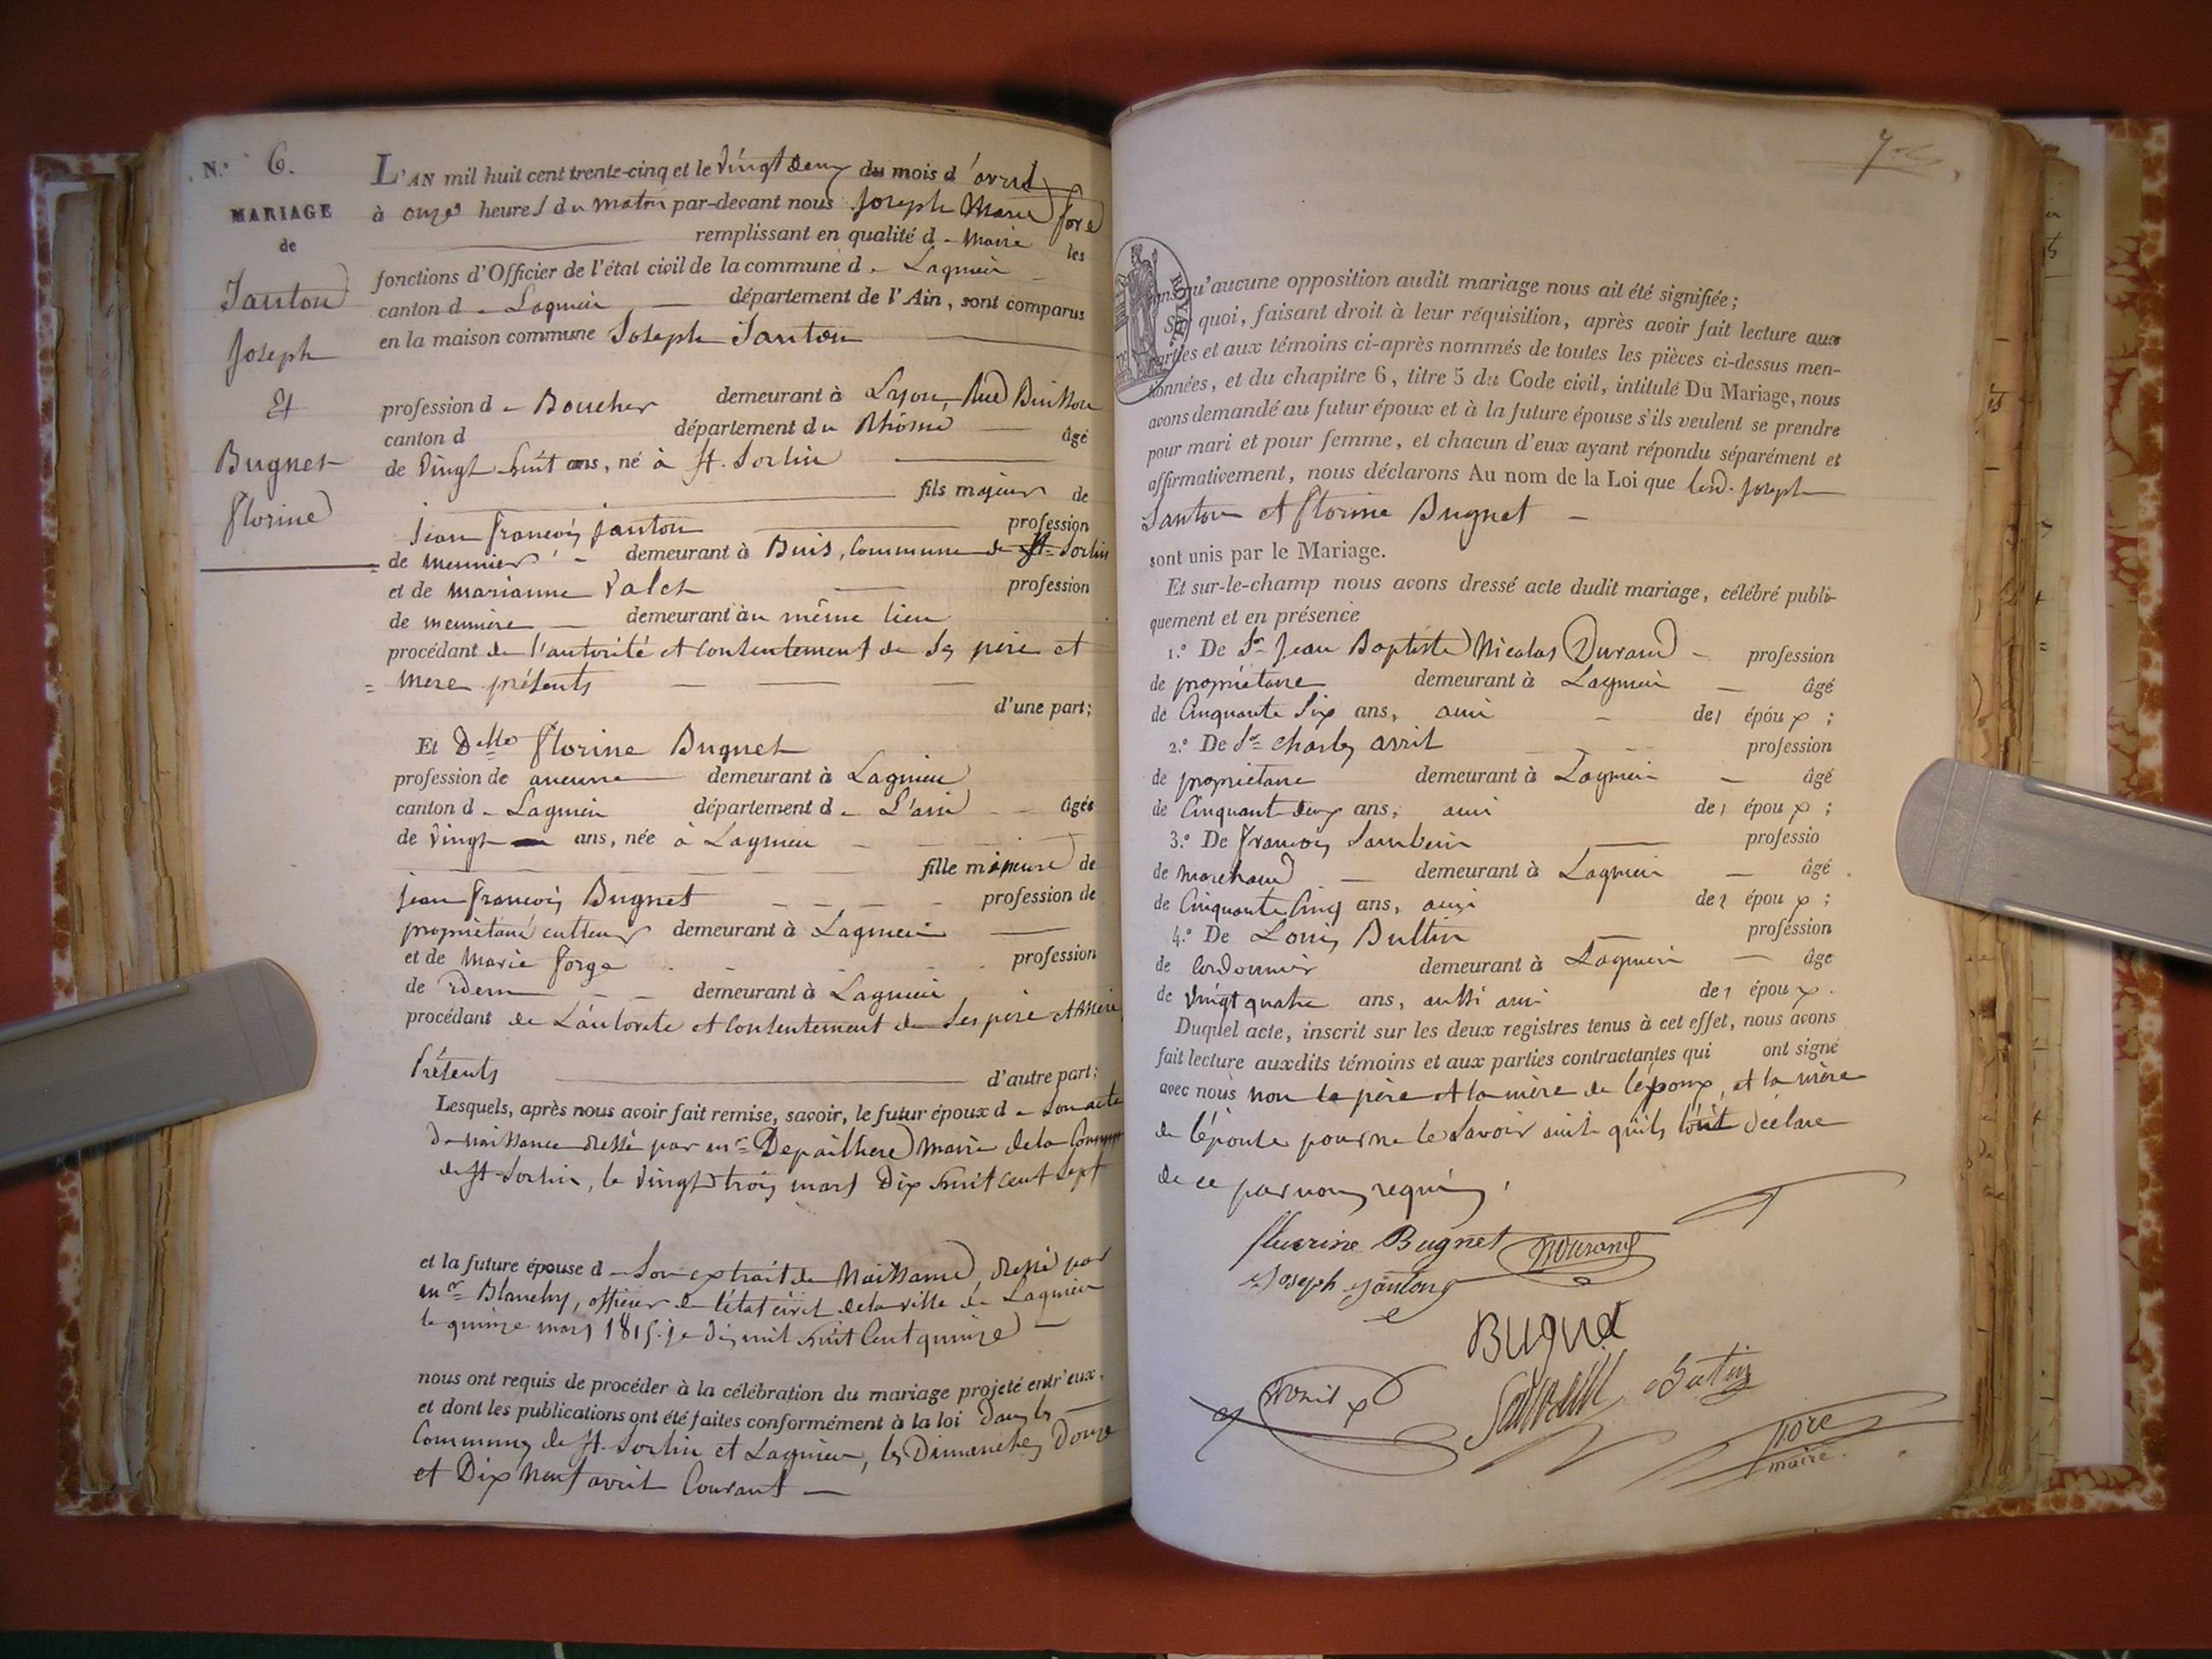 N.° 6.
MARIAGE
de
Janton
Joseph
Et
Bugnet
florine
L'AN mil huit cent trente-cinq et le vingt deux du mois d'avril
à onze heures du matin par-devant nous Joseph Marie fore
remplissant en qualité de Maire les
fonctions d'Officier de l'état civil de la commune de Lagnieu
canton de Lagnieu département de l'Ain, sont comparus
en la maison commune Joseph Janton
profession de Boucher demeurant à Lyon, Rue Buisson
canton d département du Rhône âgé
de vingt huit ans, né à St. Sorlin
fils majeur de
jean françois janton profession
de meunier demeurant à Buis, Commune de St. Sorlin
et de marianne Valet profession
de meunière demeurant au même lieu
procédant de l'autorité et Consentement de ses père et
mere présents
d'une part;
Et Delle florine Bugnet
profession de aucune demeurant à Lagnieu
canton de Lagnieu département de L'ain âgée
de vingt ans, née à Lagnieu
fille mineure de
jean françois Bugnet profession de
propriétaire cultteur demeurant à Lagnieu
et de Marie forge profession
de idem demeurant à Lagnieu
procédant de L'autorité et Consentement de Ses père et Mère
Présents d'autre part;
Lesquels, après nous avoir fait remise, savoir, le futur époux de Son acte
de naissance dressé par mr. Depailhere maire de la Commune
de St-Sorlin, le vingt trois mars Dix huit cent sept
et la future épouse de Son extrait de Naissance, dressé par
mr. Blanchy, officier de l'état civil de la ville de Lagnieu
le quinze mars 1815. je dis mil huit Cent quinze
nous ont requis de procéder à la célébration du mariage projeté entr'eux,
et dont les publications ont été faites conformément à la loi dans les
Communes de St. Sorlin et Lagnieu, les Dimanches Douze
et Dix Neuf avril Courant
qu'aucune opposition audit mariage nous ait été signifiée;
Sur quoi, faisant droit à leur réquisition, après avoir fait lecture aux
parties et aux témoins ci-après nommés de toutes les pièces ci-dessus men-
tionnées, et du chapitre 6, titre 5 du Code civil, intitulé Du Mariage, nous
avons demandé au futur époux et à la future épouse s'ils veulent se prendre
pour mari et pour femme, et chacun d'eux ayant répondu séparément et
affirmativement, nous déclarons Au nom de la Loi que lesd. Joseph
Janton et florine Bugnet
sont unis par le Mariage.
Et sur-le-champ nous avons dressé acte dudit mariage, célébré publi-
quement et en présence
1.° De Sr. Jean Baptiste Nicolas Durand profession
de propriétaire demeurant à Lagnieu âgé
de Cinquante Six ans, ami des époux;
2.° De Sr. charles avril profession
de propriétaire demeurant à Lagnieu âgé
de Cinquante deux ans, ami des époux;
3.° De françois professio
de marchand demeurant à Lagnieu âgé
de Cinquante Cinq ans, ami des époux;
4.° De Louis Buttin profession
de Cordonnier demeurant à Lagnieu âge
de vingt quatre ans, aussi ami des époux.
Duquel acte, inscrit sur les deux registres tenus à cet effet, nous avons
fait lecture auxdits témoins et aux parties contractantes qui ont signé
avec nous non le père et la mère de l'époux, et la mère
de l'épouse pour ne le Savoir ainsi qu'ils l'ont déclaré
de ce par nous requis.
fleurine Bugnet NDurand
Joseph jantong
Bugnet
Avril
fore
maire.